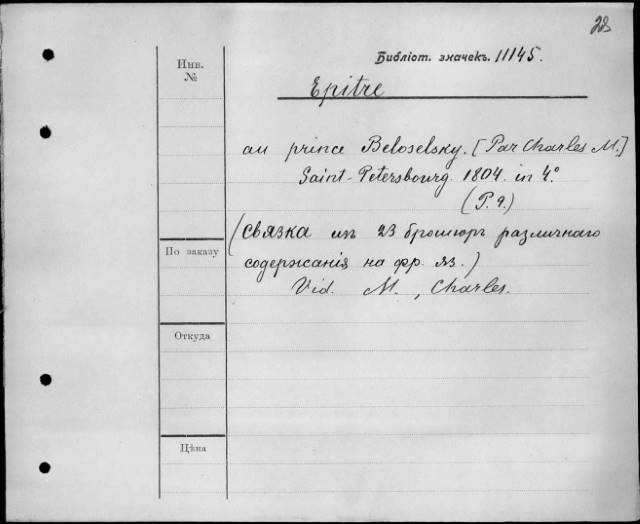 28
Библіот. значекъ. 11145.
Инв.
№
Epitre
au prince Beloselsky. [Par Charles M.]
Saint-Petersbourg. 1804. in 4.°
(P. 9.)
(Связка изъ 23 брошюръ различнаго
По заказу
содержанія на фр. яз.)
Vid. M., Charles.
Откуда
Цѣна